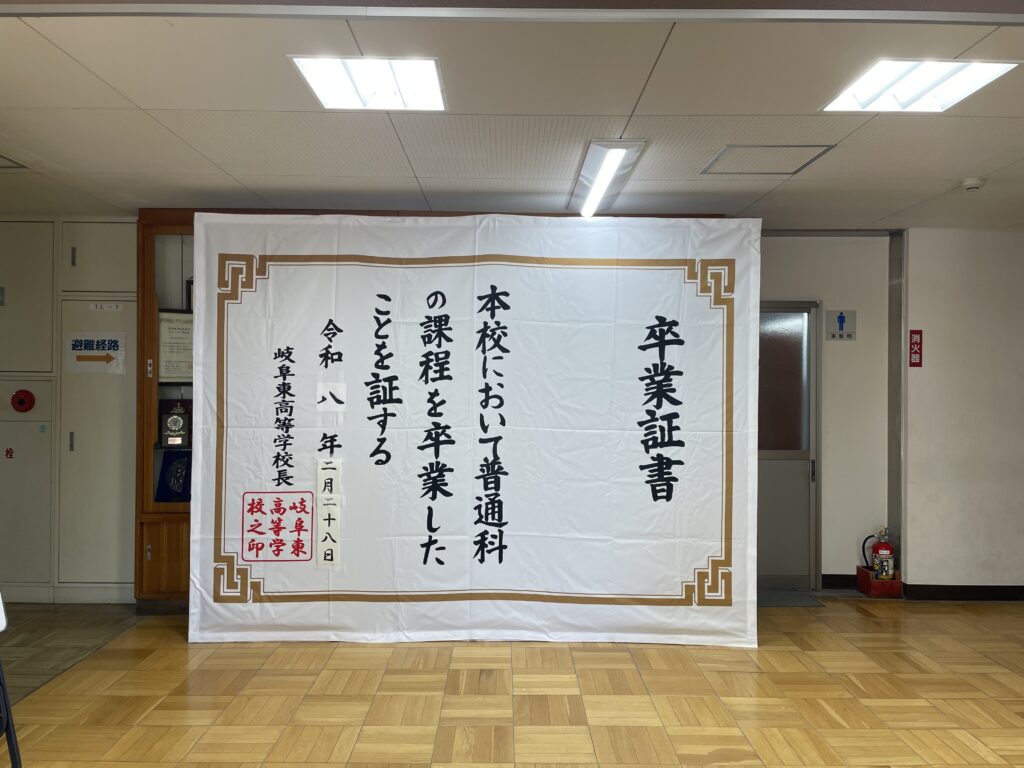 卒業証書
本校において普通科
の課程を卒業した
ことを証する
令和八年二月二十八日
岐阜東高等学校長
岐阜東
高等学
校之印
避難経路
消火器
栓